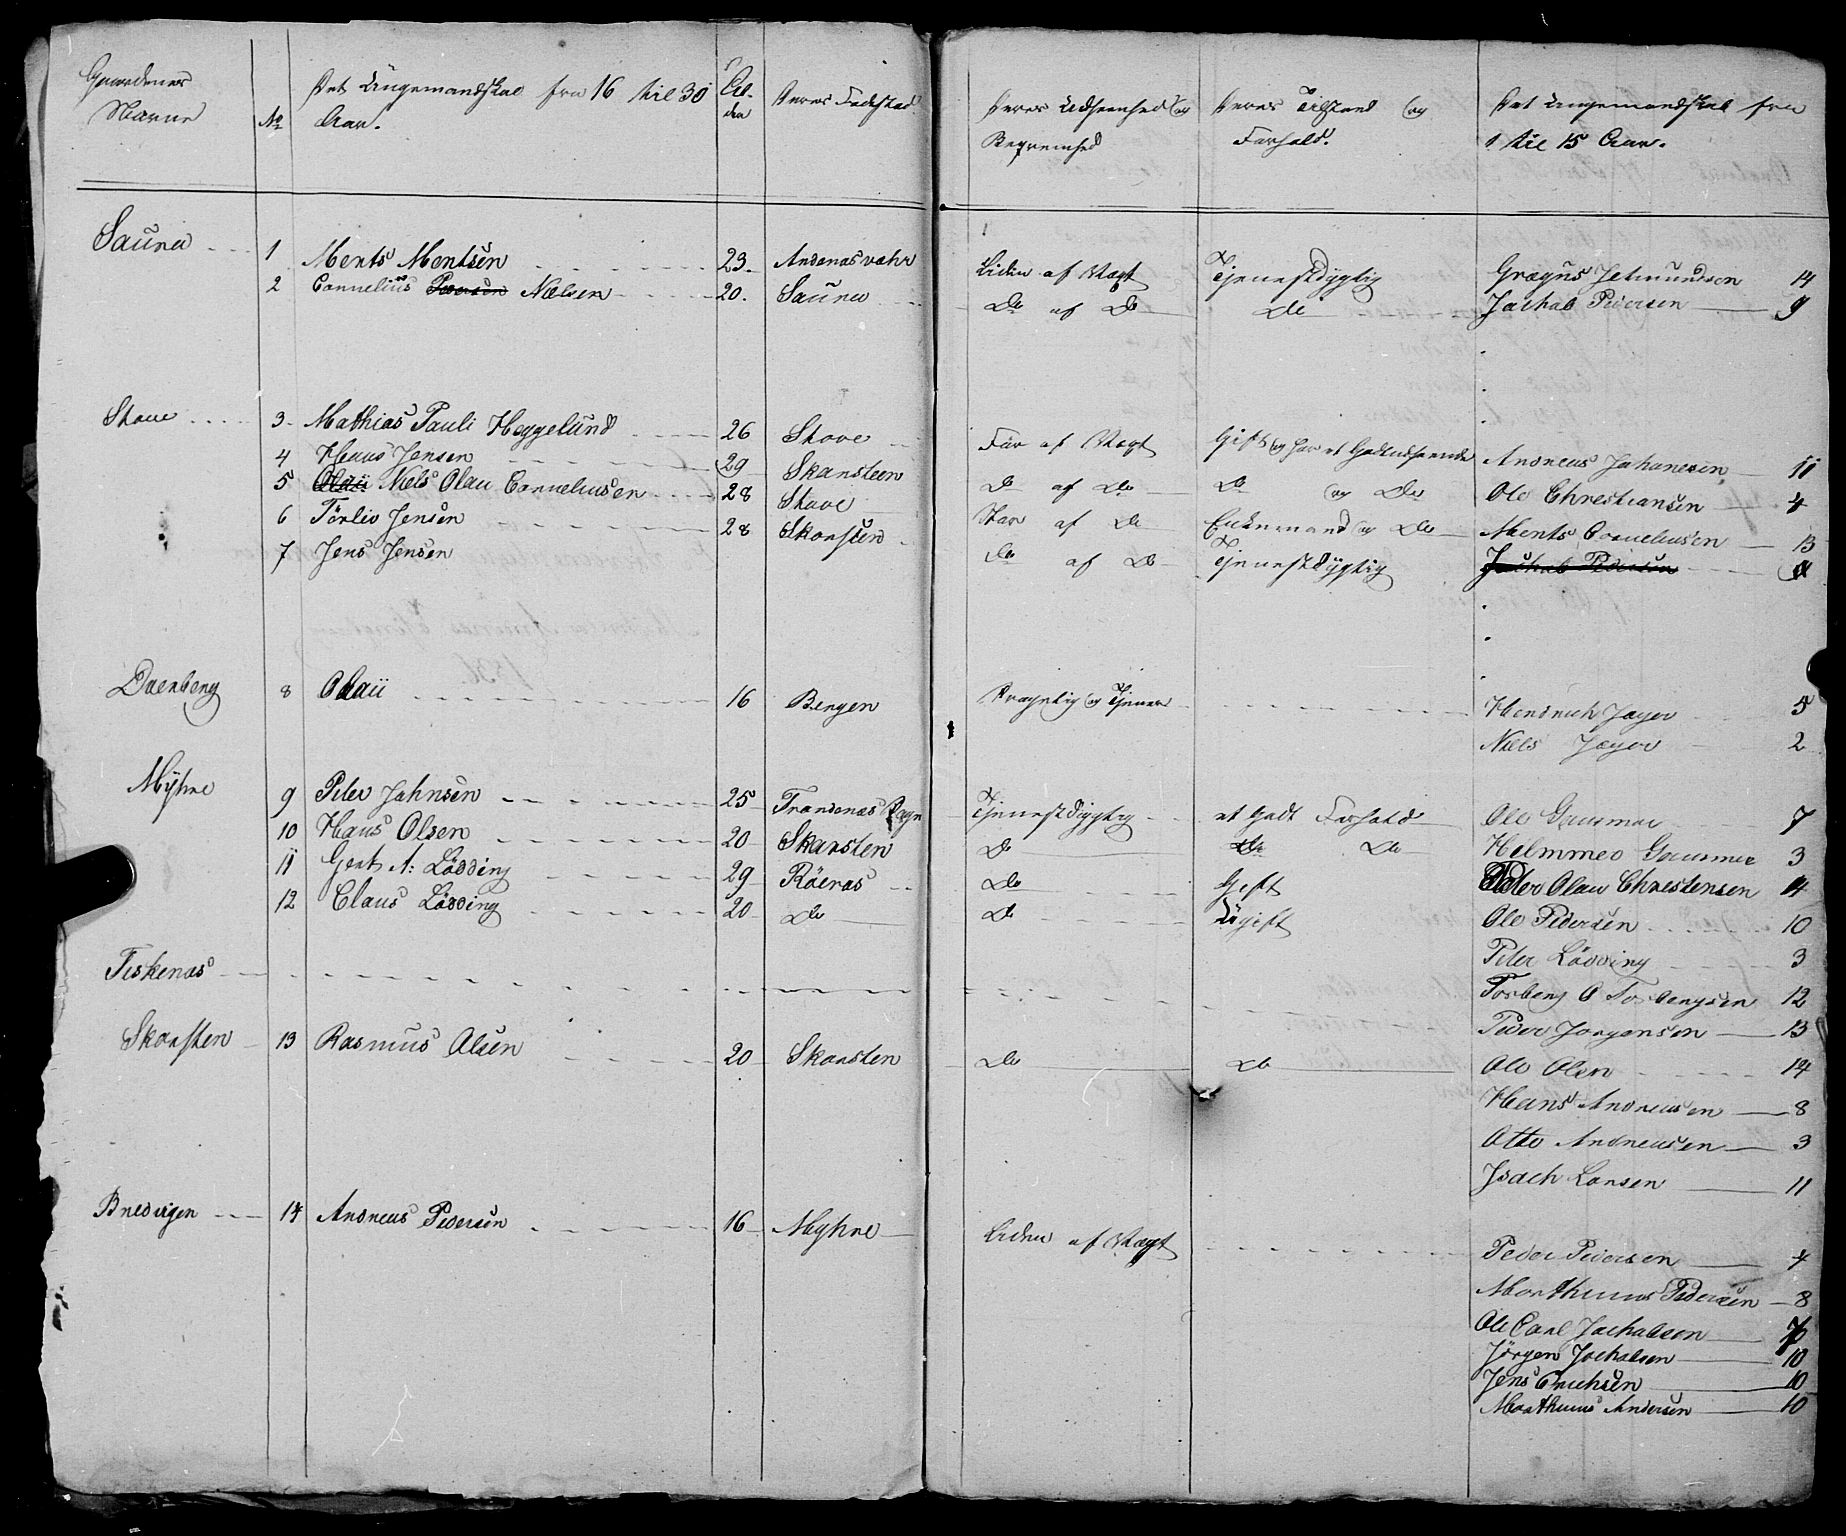 Gaardenes Navne
No
Det Ungemandskab fra 16 til 30 Aar.
Al-der
Deres Fødested
Deres Udseenhed og Beqvemhed
Deres Tilstand og Forhold.
Det Ungemandskab fra 1 til 15 Aar.
Saura 1 Ments Mentsen 23. Andenæs væhr Liden af Væxt Tjenestdygtig Grægus Jetmundsen 14
2 Cornelius Pedersen Nielsen 20. Saura Do af Do Do Jachab Pedersen 9
Stave 3 Mathias Pauli Heggelund 26 Stave Før af Væxt Gift og har et Godtudseende Andreas Johanesen 11
4 Hans Jensen 29 Skansteen Do af Do Do og Do Ole Christiansen 4
5 Olaii Niels Olaii Corneliusen 28 Stave Stor af Do Enkemand og Do Ments Corneliusen 13
6 Törliv Jensen 28 Skarsten Do af Do Tjenestdygtig Jachab Pedersen
7 Jens Jensen
Daerberg 8 Olaii 16 Bergen og Tjener Hendrich Jæger 5
Niels Jæger 2
Myhre 9 Peter Jahnsen 25 Trondenæs Sogn Tjenestdygtig et Godt Forhold Ole Grammer 7
10 Hans Olsen 20 Skarsten Do Do Do Helmmer Grammer 3
11 Gert A: Lödding 29 Röeraas Do Gift Peder Olau Christensen 14
12 Claus Lödding 20 Do Do Ugift Ole Pedersen 10
Peter Lödding 3
Fiskenæs Torberg O Torbergsen 12
Peder Jorgensen 13
Skarsten 13 Rasmus Olsen 20 Skarsten Do Do Ole Olsen 14
Hans Andreasen 8
Otto Andreasen 3
Isach Larsen 11
Bredvigen 14 Andreas Pedersen 16 Myhre Liden af Væxt
Peder Pedersen 4
Marthinus Pedersen 8
Ole Carl Jachabsen 7
Jörgen Jachabsen 10
Jens Erichsen 10
Marthinus Andersen 10